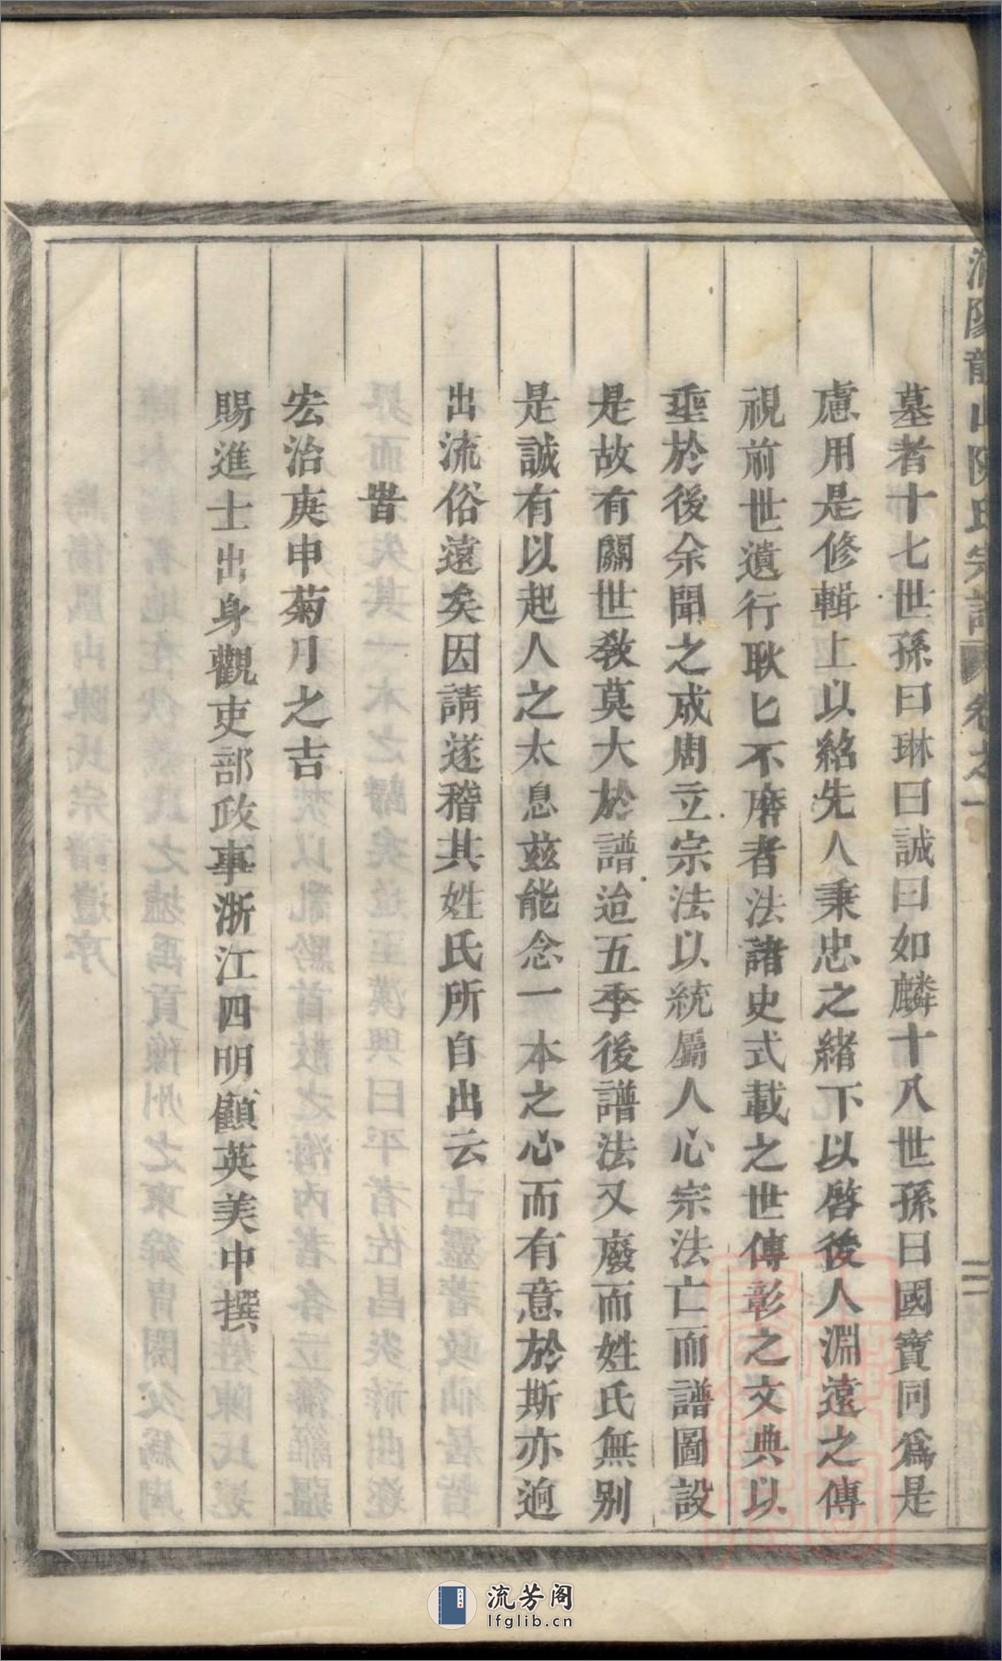 龍山陳氏宗譜 卷之一
墓者十七世孫曰琳曰誠曰如麟十八世孫曰國寶同爲是
慮用是修輯上以紹先人秉忠之緒下以啓後人淵遠之傳
視前世遺行耿匕不磨者法諸史式載之世傳彰之文典以
垂於後余聞之成周立宗法以統屬人心宗法亡而譜圖設
是故有關世敎莫大於譜迨五季後譜法又廢而姓氏無别
是誠有以起人之太息兹能念一本之心而有意於斯亦逈
出流俗遠矣因請遂稽其姓氏所自出云
旹
宏治庚申菊月之吉
賜進士出身觀吏部政事浙江四明顧英美中撰
流芳阁
lfglib.cn